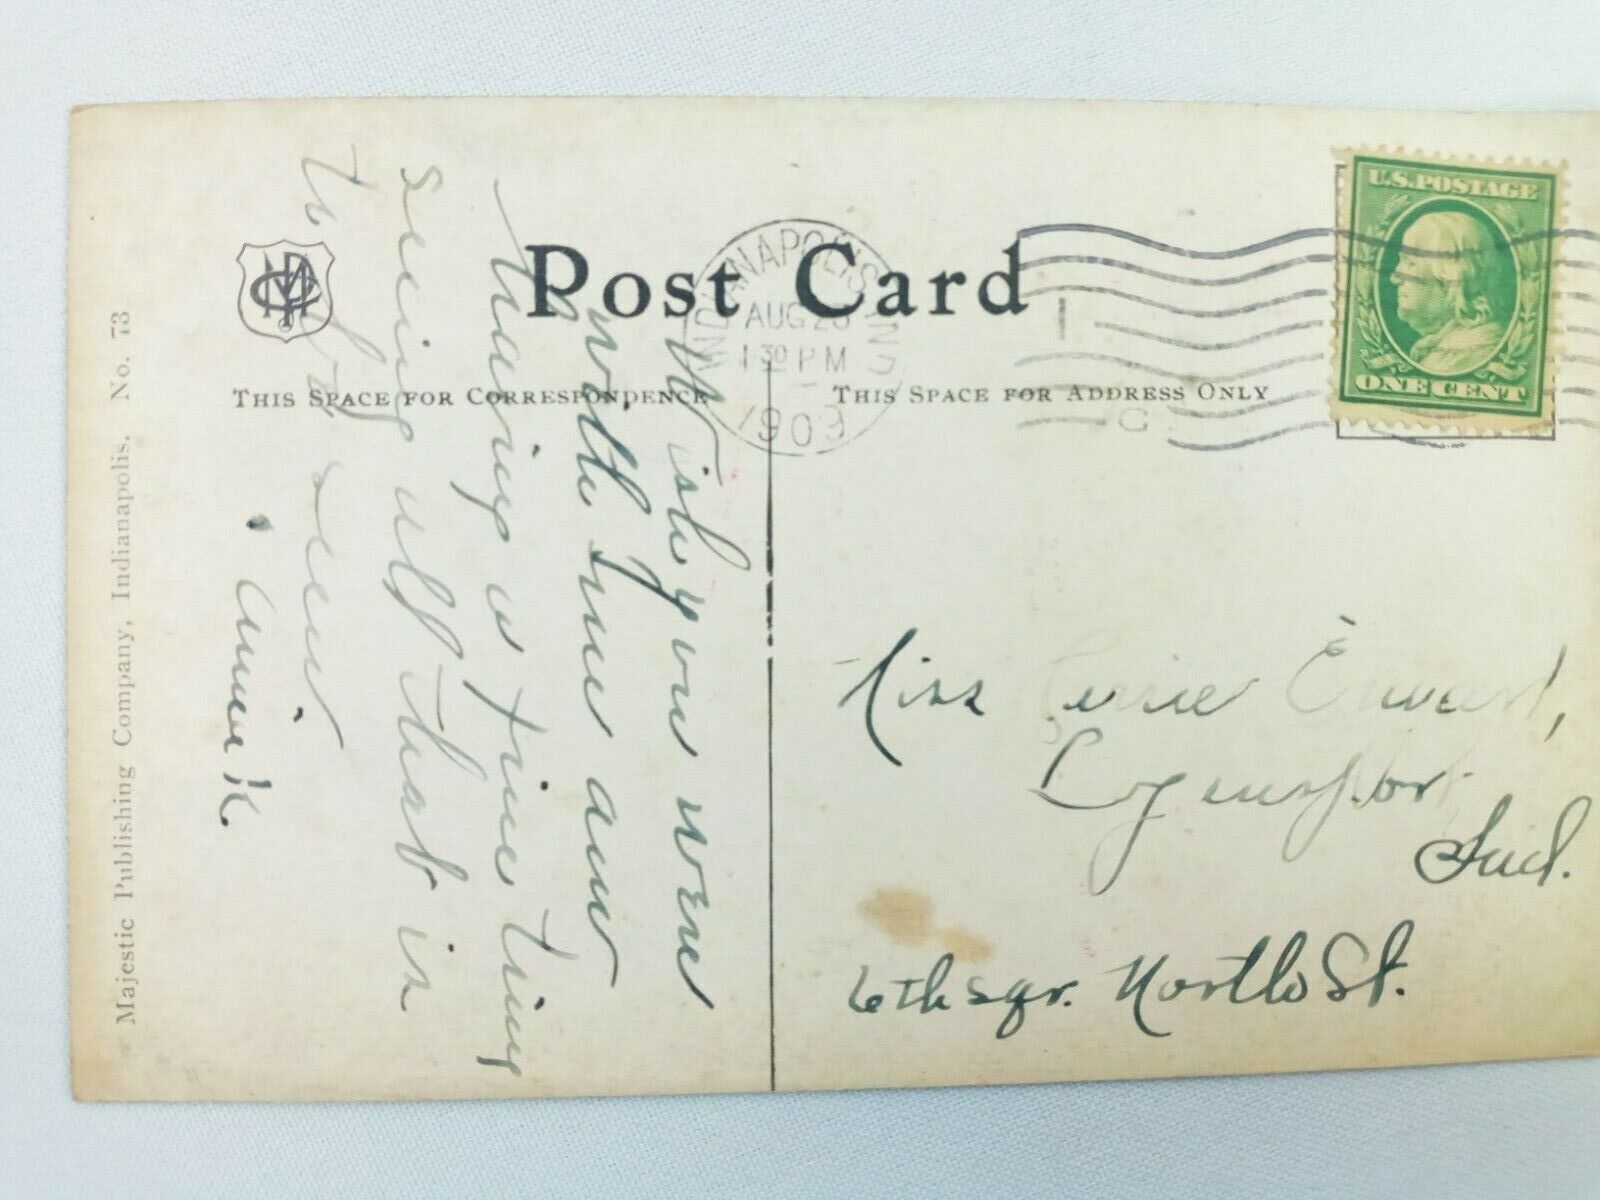 Post Card
THIS SPACE FOR CORRESPONDENCE
THIS SPACE FOR ADDRESS ONLY
U.S. POSTAGE
ONE CENT
INDIANAPOLIS IND
AUG 28
1 30 PM
1909
Majestic Publishing Company, Indianapolis. No. 73
Wish you were
with me am
having a fine time
seeing all that is
to be seen
Anna K.
Miss
Logansport
Ind.
6th sqr. North St.